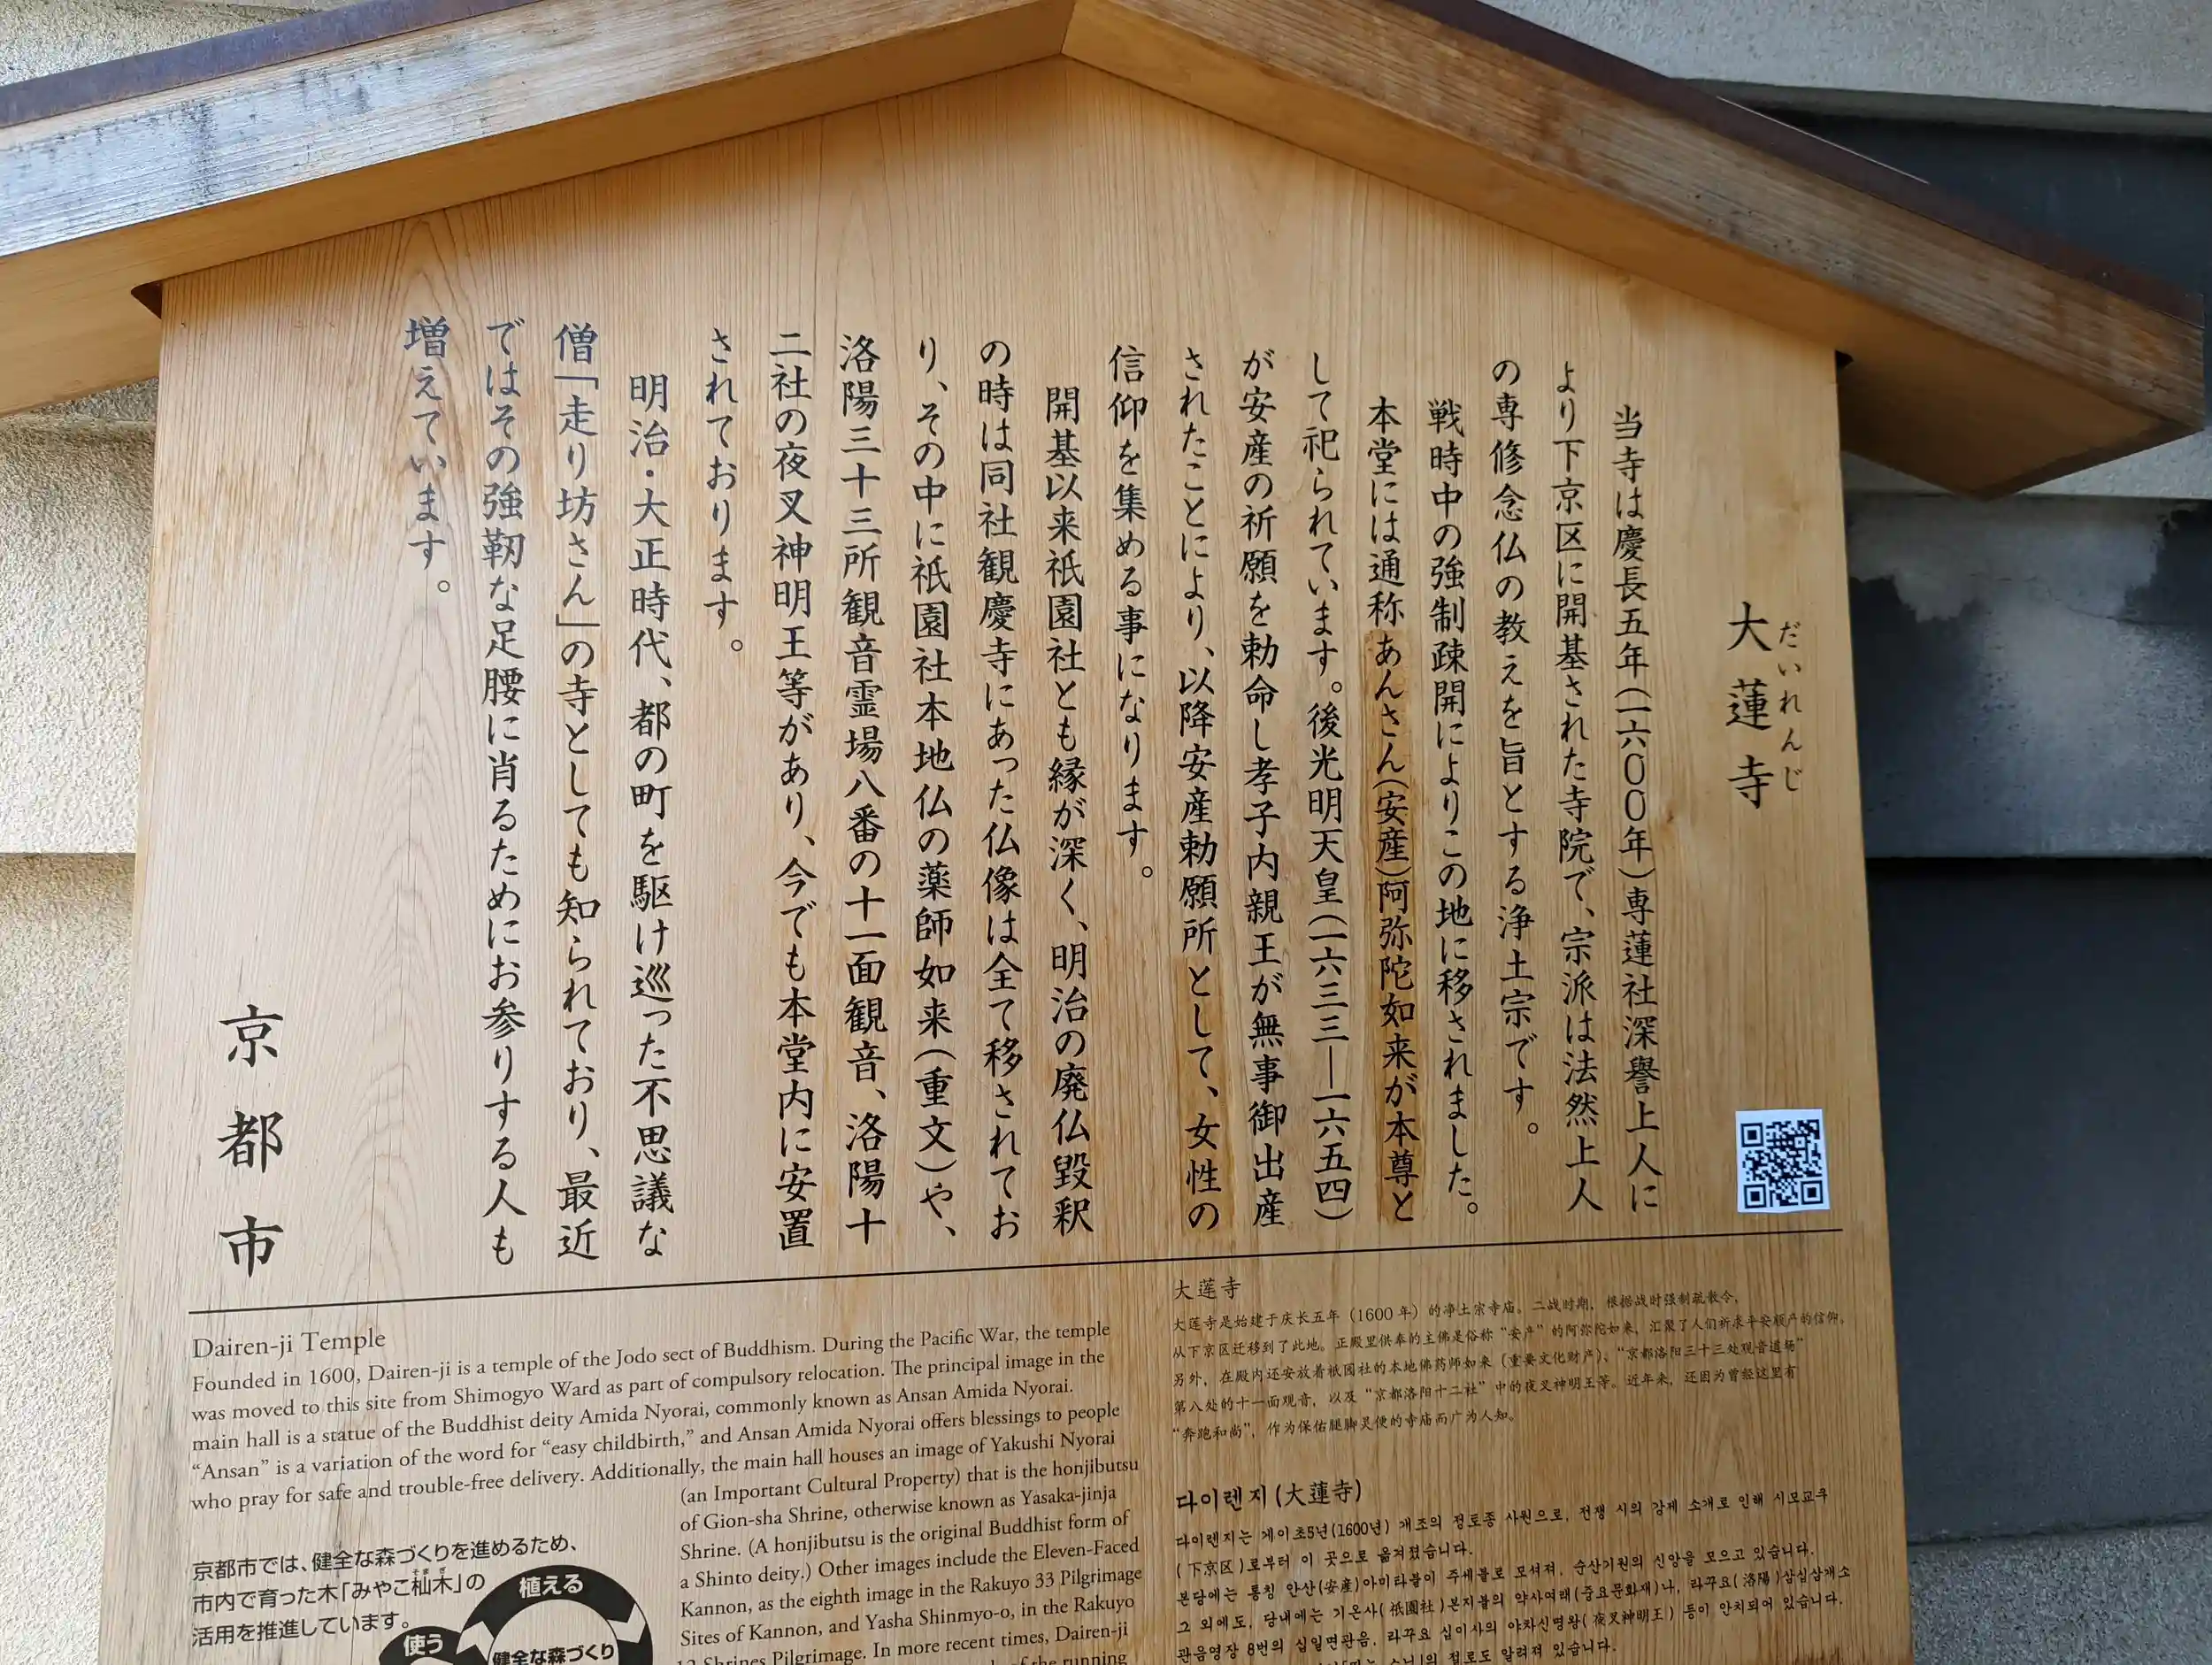 大蓮寺
だいれんじ
当寺は慶長五年(一六〇〇年)専蓮社深譽上人に
より下京区に開基された寺院で、宗派は法然上人
の専修念仏の教えを旨とする浄土宗です。
戦時中の強制疎開によりこの地に移されました。
本堂には通称あんさん(安産)阿弥陀如来が本尊と
して祀られています。後光明天皇(一六三三―一六五四)
が安産の祈願を勅命し孝子内親王が無事御出産
されたことにより、以降安産勅願所として、女性の
信仰を集める事になります。
開基以来祇園社とも縁が深く、明治の廃仏毀釈
の時は同社観慶寺にあった仏像は全て移されてお
り、その中に祇園社本地仏の薬師如来(重文)や、
洛陽三十三所観音霊場八番の十一面観音、洛陽十
二社の夜叉神明王等があり、今でも本堂内に安置
されております。
明治・大正時代、都の町を駆け巡った不思議な
僧「走り坊さん」の寺としても知られており、最近
ではその強靭な足腰に肖るためにお参りする人も
増えています。
京都市
Dairen-ji Temple
Founded in 1600, Dairen-ji is a temple of the Jodo sect of Buddhism. During the Pacific War, the temple
was moved to this site from Shimogyo Ward as part of compulsory relocation. The principal image in the
main hall is a statue of the Buddhist deity Amida Nyorai, commonly known as Ansan Amida Nyorai.
“Ansan” is a variation of the word for “easy childbirth,” and Ansan Amida Nyorai offers blessings to people
who pray for safe and trouble-free delivery. Additionally, the main hall houses an image of Yakushi Nyorai
(an Important Cultural Property) that is the honjibutsu
of Gion-sha Shrine, otherwise known as Yasaka-jinja
Shrine. (A honjibutsu is the original Buddhist form of
a Shinto deity.) Other images include the Eleven-Faced
Kannon, as the eighth image in the Rakuyo 33 Pilgrimage
Sites of Kannon, and Yasha Shinmyo-o, in the Rakuyo
12 Shrines Pilgrimage. In more recent times, Dairen-ji
of the running
京都市では、健全な森づくりを進めるため、
市内で育った木「みやこ杣木」の
そまぎ
活用を推進しています。
植える
使う
健全な森づくり
大莲寺
大莲寺是始建于庆长五年（1600年）的净土宗寺庙。二战时期，根据战时强制疏散令，
从下京区迁移到了此地。正殿里供奉的主佛是俗称“安产”的阿弥陀如来，汇聚了人们祈求平安顺产的信仰。
另外，在殿内还安放着祇园社的本地佛药师如来（重要文化财产）、“京都洛阳三十三处观音道场”
第八处的十一面观音，以及“京都洛阳十二社”中的夜叉神明王等。近年来，还因为曾经这里有
“奔跑和尚”，作为保佑腿脚灵便的寺庙而广为人知。
다이렌지(大蓮寺)
다이렌지는 게이초5년(1600년) 개조의 정토종 사원으로, 전쟁 시의 강제 소개로 인해 시모교쿠
(下京区)로부터 이 곳으로 옮겨졌습니다.
본당에는 통칭 안산(安産)아미타불이 주세불로 모셔져, 순산기원의 신앙을 모으고 있습니다.
그 외에도, 당내에는 기온사(祇園社)본지불의 약사여래(중요문화재)나, 라꾸요(洛陽)삼십삼개소
관음영장 8번의 십일면관음, 라꾸요 십이사의 야차신명왕(夜叉神明王) 등이 안치되어 있습니다.
절로도 알려져 있습니다.